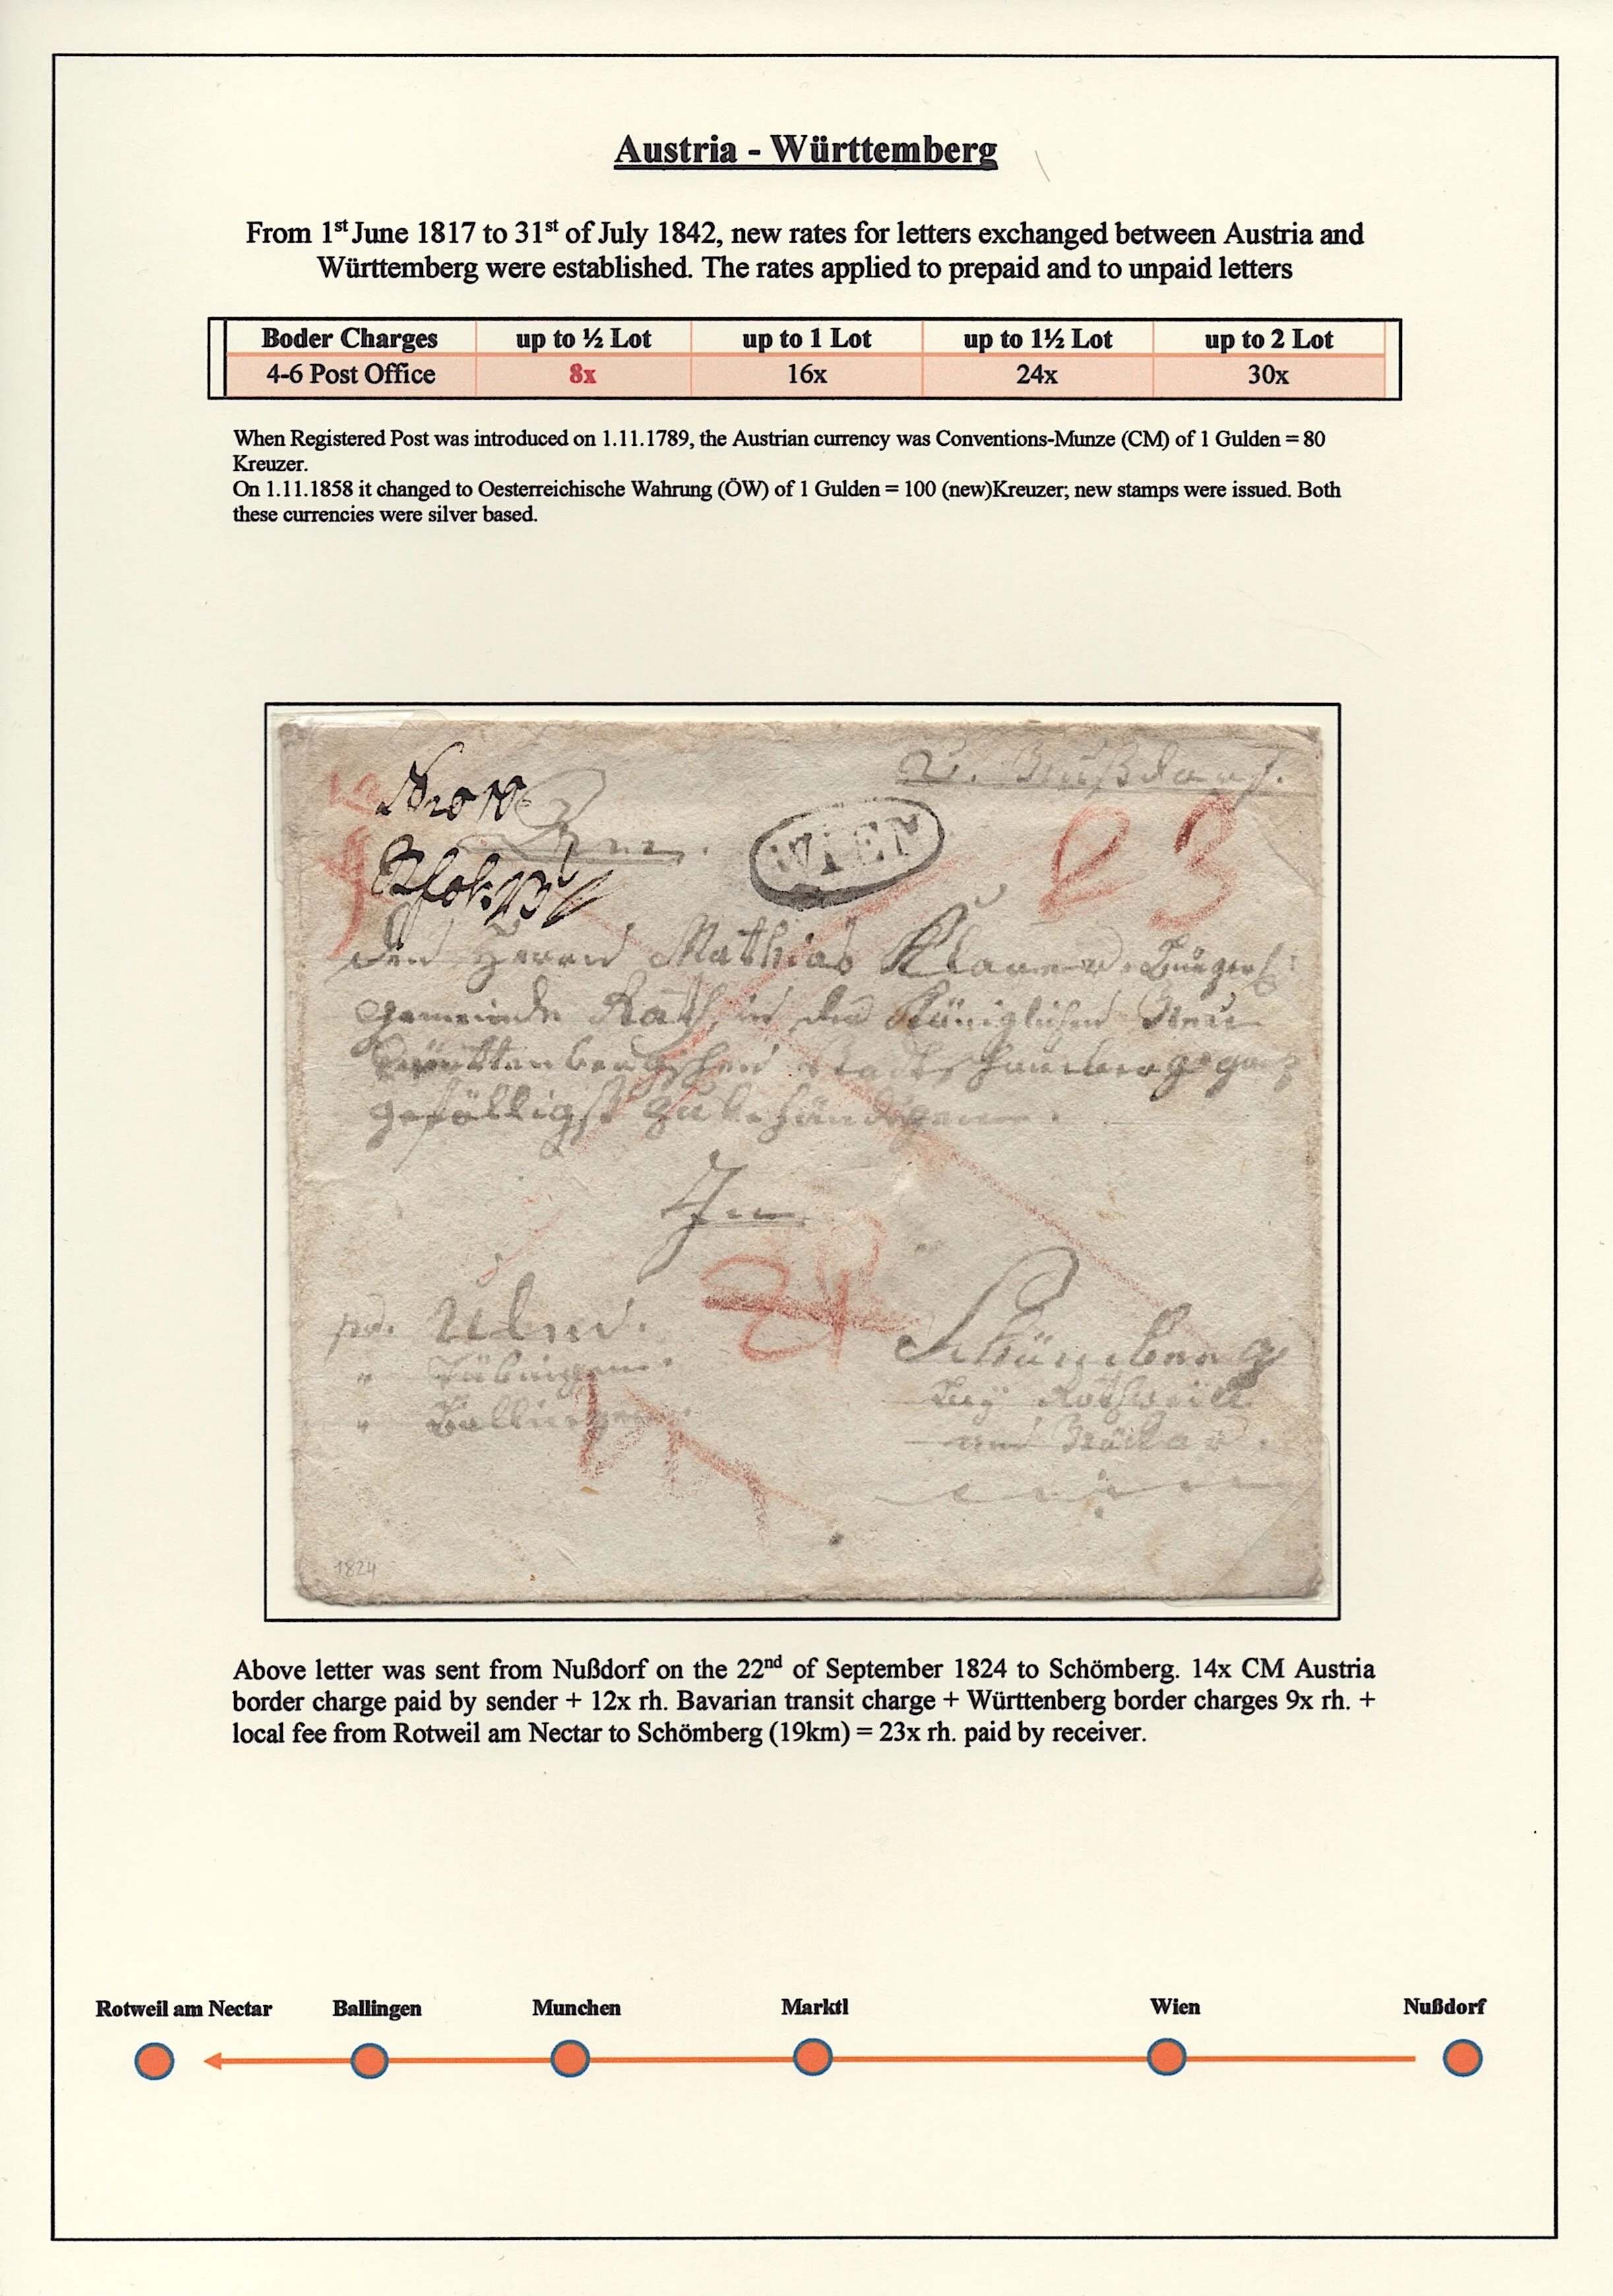 Austria - Württemberg
From 1st June 1817 to 31st of July 1842, new rates for letters exchanged between Austria and
Württemberg were established. The rates applied to prepaid and to unpaid letters
Boder Charges up to ½ Lot up to 1 Lot up to 1½ Lot up to 2 Lot
4-6 Post Office 8x 16x 24x 30x
When Registered Post was introduced on 1.11.1789, the Austrian currency was Conventions-Munze (CM) of 1 Gulden = 80
Kreuzer.
On 1.11.1858 it changed to Oesterreichische Wahrung (ÖW) of 1 Gulden = 100 (new)Kreuzer; new stamps were issued. Both
these currencies were silver based.
v. Nußdorf.
WIEN
23
Dem Herrn Mathias Klaner
Gemeinde Rath in der Königlichen Neu
Württenbergschen Stadt
gefälligst zu behändigen.
In
pr. Ulm.
" Tübingen.
" Ballingen.
Schömberg
bey Rothweil
am Neckar.
1824
Above letter was sent from Nußdorf on the 22nd of September 1824 to Schömberg. 14x CM Austria
border charge paid by sender + 12x rh. Bavarian transit charge + Württenberg border charges 9x rh. +
local fee from Rotweil am Nectar to Schömberg (19km) = 23x rh. paid by receiver.
Rotweil am Nectar Ballingen Munchen Marktl Wien Nußdorf